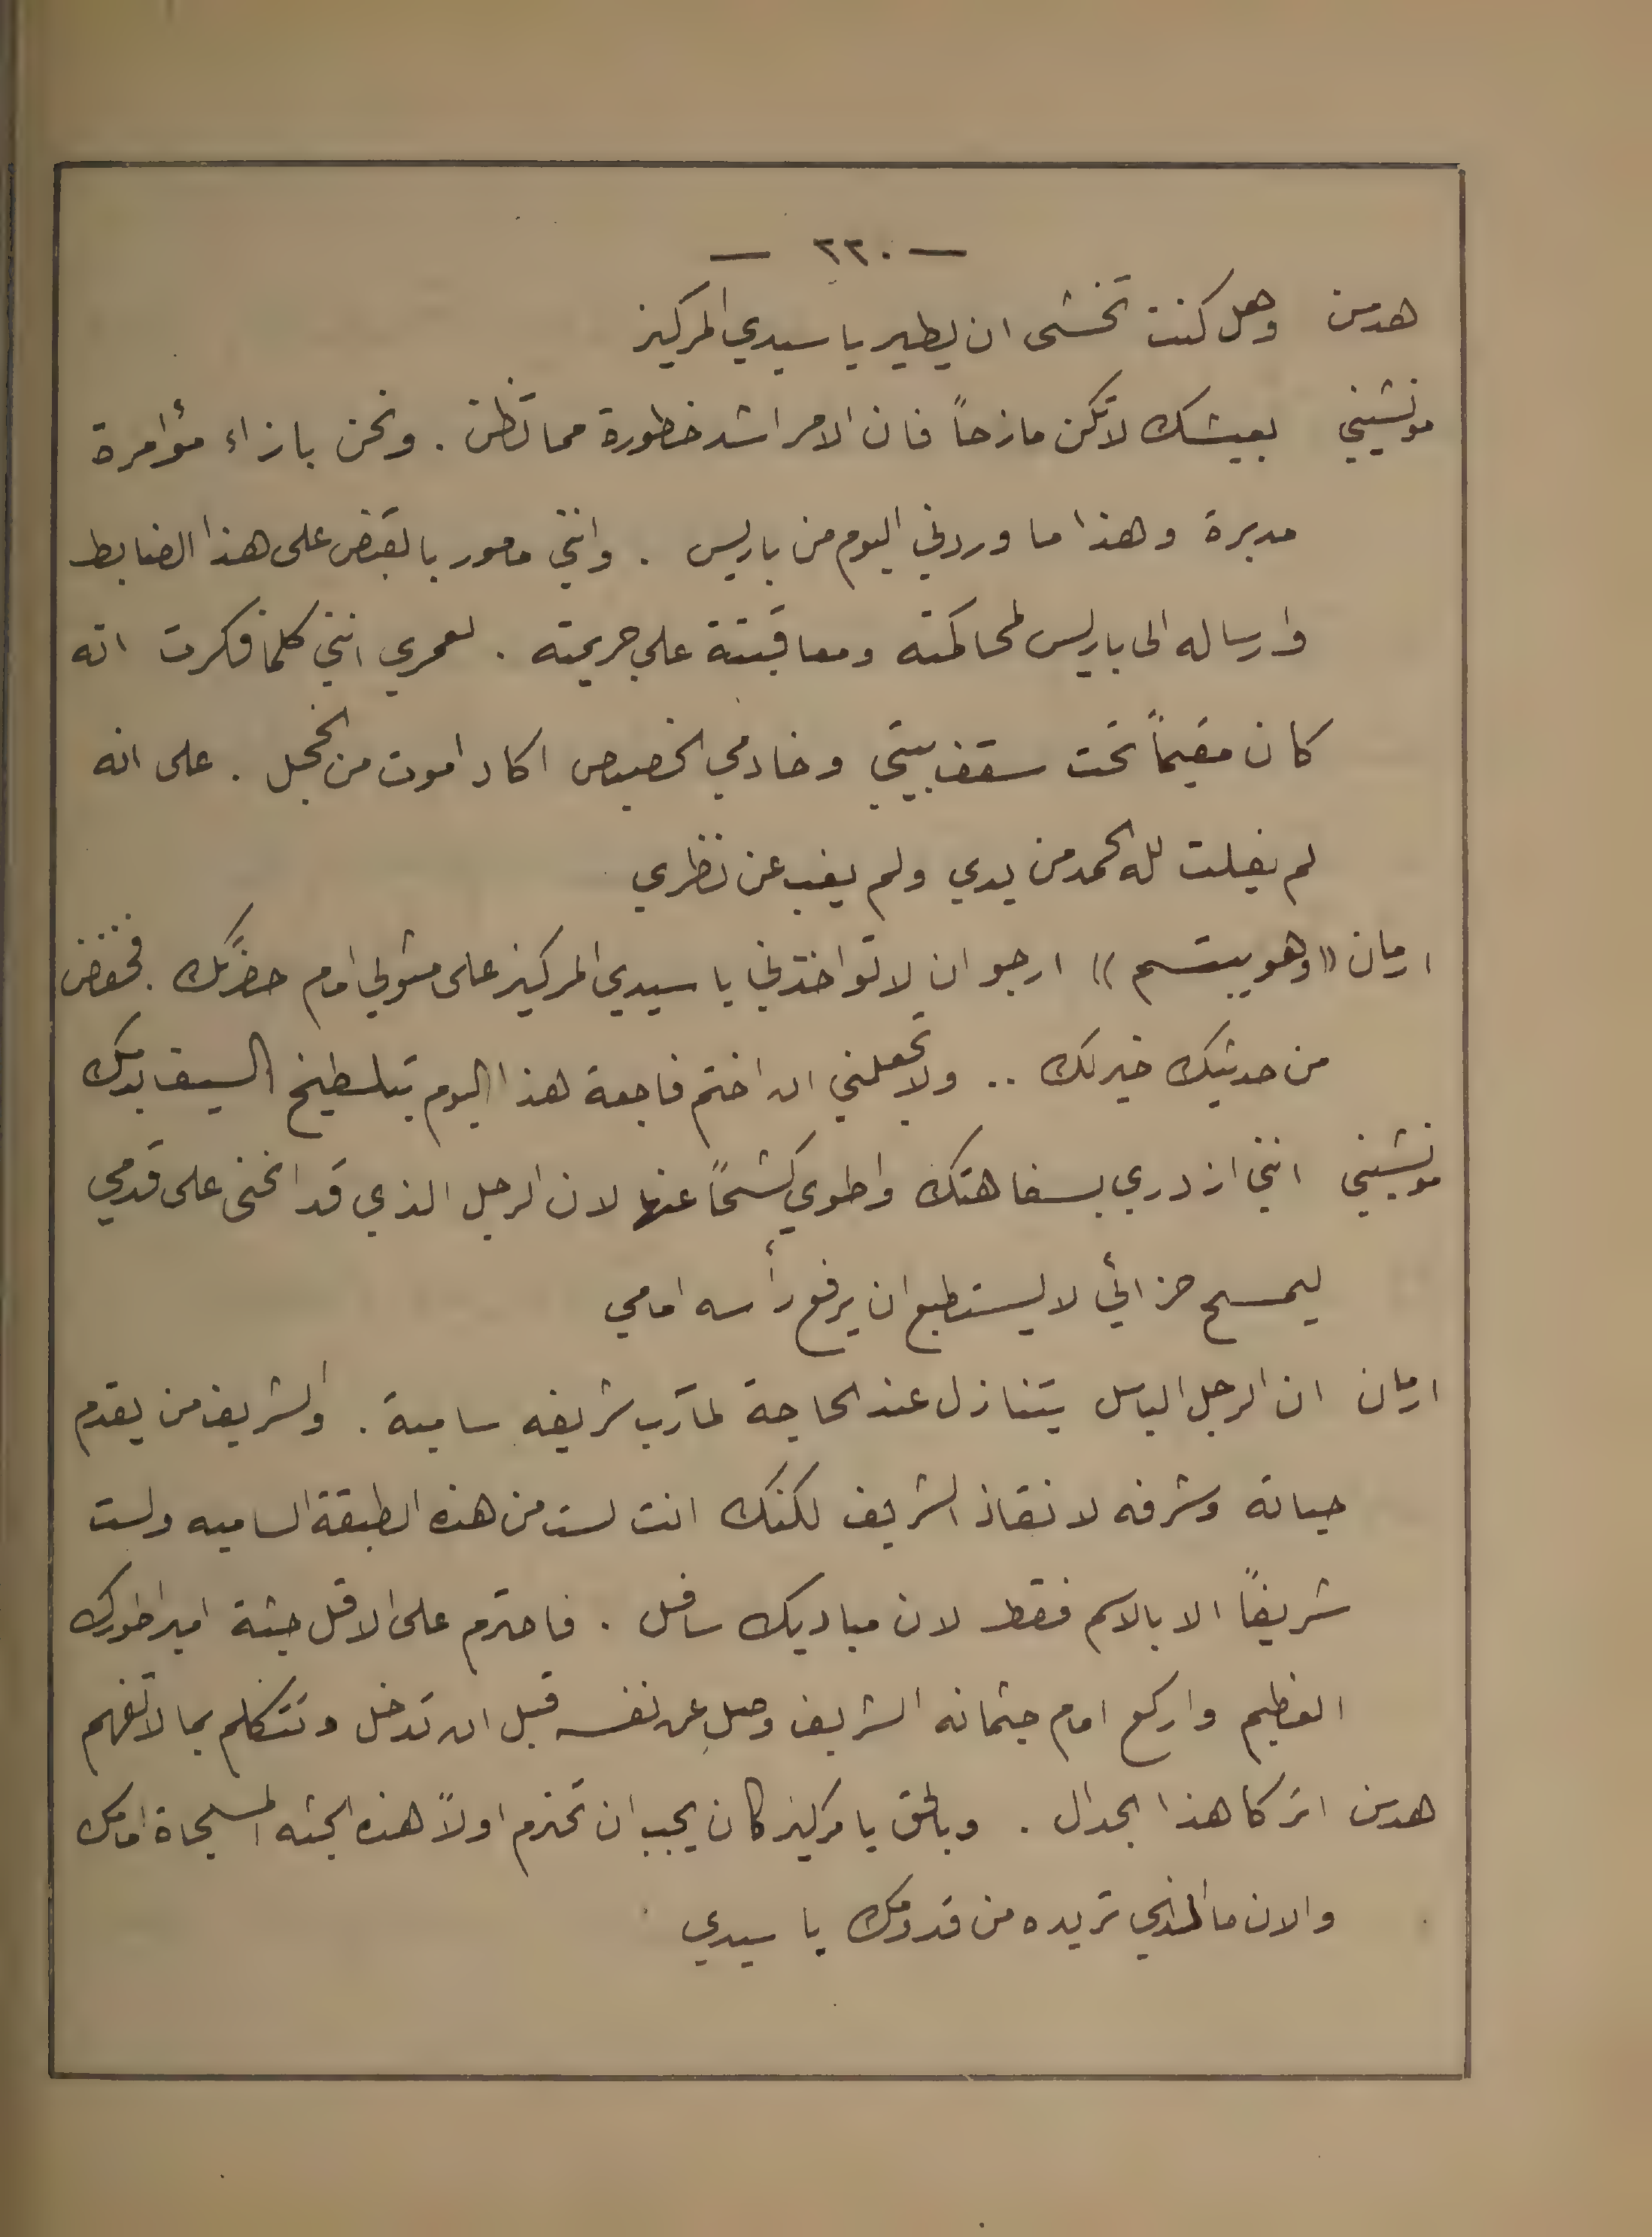 — ٢٢٠ —
هدسن وهل كنت تخشى ان يطير يا سيدي المركيز
مونشيني بعيشك لا تكن مازحاً فان الامر اشد خطورة مما تظن . ونحن بازاء مؤامرة
مدبرة وهذا ما وردني اليوم من باريس . وانني مامور بالقبض على هذا الضابط
وارساله الى باريس لمحاكمته ومعاقبتة على جريمته . لعمري انني كلما فكرت انه
كان مقيماً تحت سقف بيتي وخادمي الخصيص اكاد اموت من الخجل . على انه
لم يفلت لله الحمد من يدي ولم يغب عن نظري
ارمان ((وهو يبتسم)) ارجو ان لا تواخذني يا سيدي المركيز على مثولي امام حضرتك . فخفض
من حدتيك خير لك .. ولا تجعلني ان اختم فاجعة هذا اليوم بتلطيخ السيف بدمك
مونشيني انني ازدري بسفاهتك واطوي كشحاً عنها لان الرجل الذي قد انحنى على قدمي
ليمسح حزائي لا يستطيع ان يرفع رأسه امامي
ارمان ان الرجل الباسل يتنازل عند الحاجة لمآرب شريفه سامية . والشريف من يقدم
حياته وشرفه لانقاذ الشريف لكنك انت لست من هذه الطبقة الساميه ولست
شريفاً الا بالاسم فقط لان مباديك سافل . فاحترم على الاقل جثة امبراطورك
العظيم واركع امام جثمانه الشريف وصلِ عن نفسه قبل ان تدخل وتتكلم بما لا تفهم
هدسن اتركا هذا الجدال . وبالحق يا مركيز كان يجب ان تحترم اولاً هذه الجثه المسجاة امامك
والان ما الذي تريده من قدومك يا سيدي